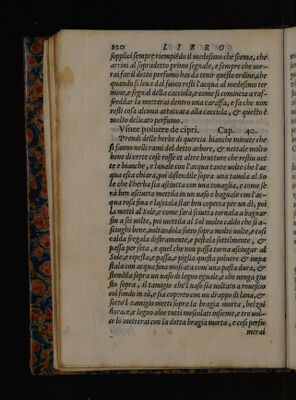 220 LIBRO
sopplici sempre riempiēdo il medesimo che scema, che
arrini al sopradetto primo segnale, e sempre che uor-
rai far il detto perfumo hai da tenir questo ordine, che
quando si leua dal fuoco resti l'acqua al medesimo ter
mine, e segnal della cacciola, e come si comincia a raf-
freddar la metterai dentro una caraffa, e fa che non
resti cosa alcuna attaccata alla cacciola, & questo è
molto delicato perfumo.
Vnice poluere de cipri. Cap. 40.
Prendi delle herbe di quercia bianche minute che
si fanno nelli rami del detto arbore, & nettale molto
bene di certe cose rosse et altre brutture che restin net-
te e bianche, e lauale con l'acqua tante uolte che l'ac-
qua esca chiara, poi distendile sopra una tauola al So
le che l'herba stia asciutta con una touaglia, e come se
rà ben asciutta mettila in un uaso e bagnale con l'ac-
qua rosa fina e lassiala star ben coperta per un dì, poi
la metti al Sole, e come sarà sciutta tornala a bagnar
fin a sei uolte, poi mettila al Sol molto caldo che si a-
sciughi bene, uoltandola sotto sopra molte uolte, e cosi
calda fregala destramente, e pestala sottilmente, &
passa per seta, e quel che non passa torna asciugar al
Sole, e ripesta, e passa, e piglia questa poluere & impa
stala con acqua fina moscata com'una pasta dura, &
distendila sopra un uaso di legno eguale, e che uenga giu
sto sopra, il tamigio che'l uaso sia uoltato a rouescio
col fondo in sù, e sia coperto con un drappo di lana, &
sotto'l tamigio metti sopra la bragia morta, belzoi
storace, e legno aloe tutti mescolati insieme, e tre uol-
te lo metterai con la detta bragia morta, e cosi perfu
merai